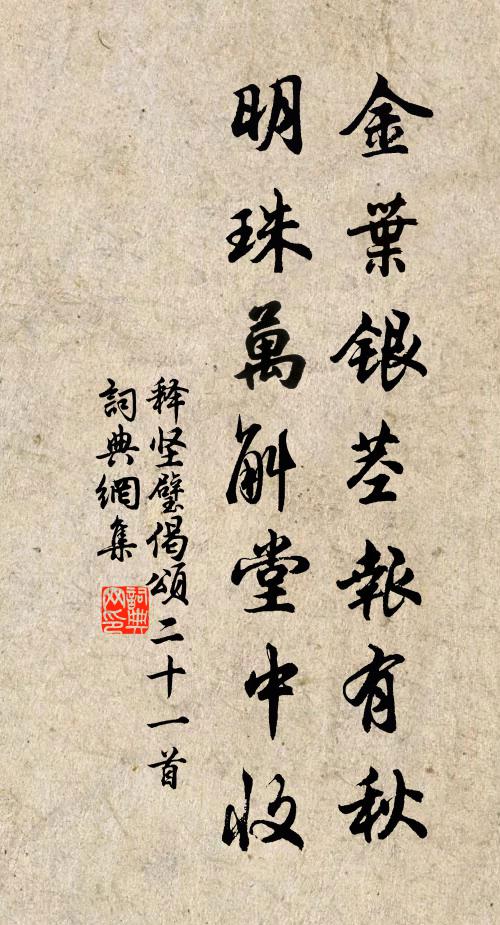 金葉銀茎報有秋
明珠萬斛堂中收
释坚璧偈頌二十一首
詞典網集
詞典網印